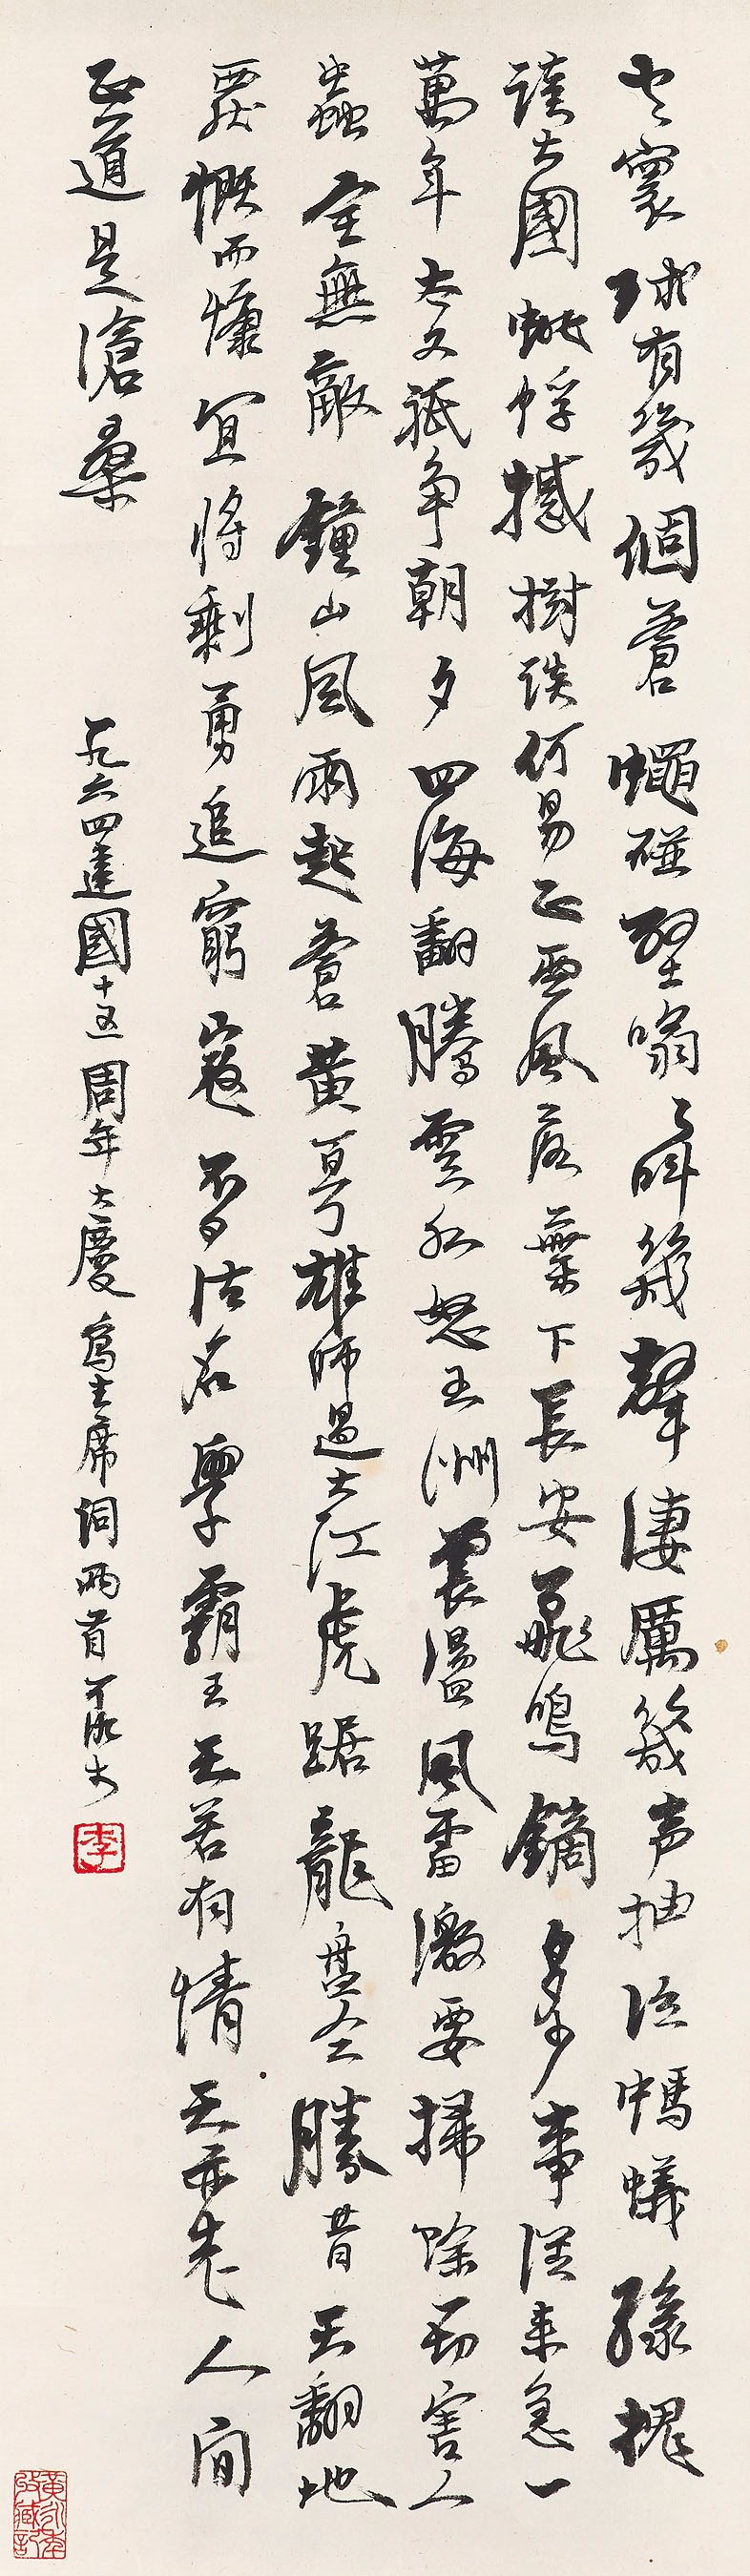 小々寰球有幾個蒼蠅碰壁嗡々叫幾聲淒厲幾声抽泣螞蟻緣槐
誇大國蚍蜉撼樹談何易正西風落葉下長安飛鳴鏑多少事從來急一
萬年太久祇争朝夕四海翻騰雲水怒五洲震盪風雷激要掃除一切害人
蟲全無敵鐘山風雨起蒼黄百萬雄師過大江虎踞龍盤今勝昔天翻地
覆慨而慷宜將剩勇追窮寇不可沽名學霸王天若有情天亦老人间
正道是滄桑
一九六四建國十五周年大慶寫主席詞兩首可染
李